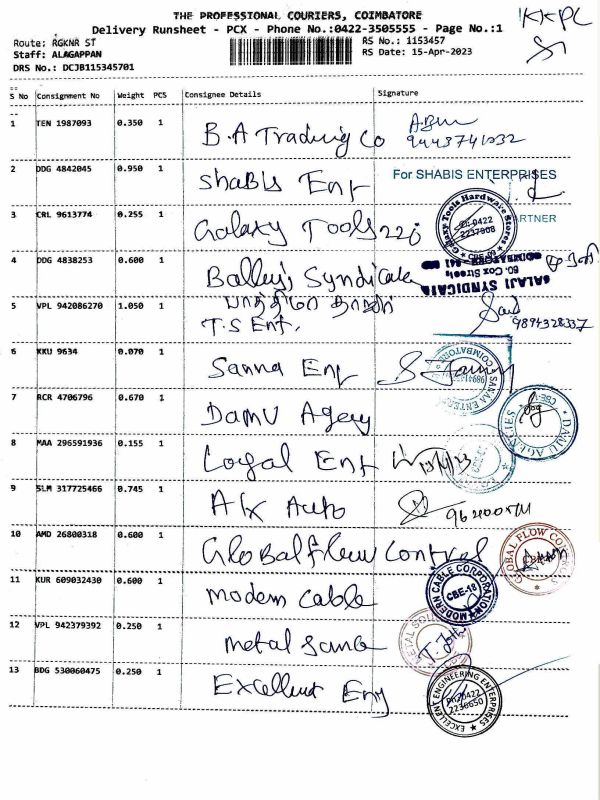 THE PROFESSIONAL COURIERS, COIMBATORE
Delivery Runsheet - PCX - Phone No.:0422-3505555 - Page No.:1
KKPL
Route: RGKNR ST
RS No.: 1153457
Staff: ALAGAPPAN
RS Date: 15-Apr-2023
DRS No.: DCJB115345701
S No Consignment No Weight PCS Consignee Details Signature
1 TEN 1987093 0.350 1 B.A Trading Co
2 DDG 4842045 0.950 1 Shabis Ent For SHABIS ENTERPRISES
3 CRL 9613774 0.255 1 Galaxy Tools Galaxy Tools Hardware Stores
4 DDG 4838253 0.600 1 Syndicate BALAJI SYNDICATE
60, Cox Street
5 VPL 942086270 1.050 1
T.S Ent. 9894328337
6 KKU 9634 0.070 1 Sanna Ent COIMBATORE
7 RCR 4706796 0.670 1 Damu Agency DAMU AGENCIES
8 MAA 296591936 0.155 1 Loyal Ent
9 SLM 317725466 0.745 1 Alx Auto
10 AMD 26800318 0.600 1 Global flow control GLOBAL FLOW
11 KUR 609032430 0.600 1 modern cable MODERN CABLE CORPORATION CBE-18
12 VPL 942379392 0.250 1 metal METAL
13 BDG 530060475 0.250 1 Excellent Eng EXCELLENT ENGINEERING ENTERPRISES
PH:0422
2238650